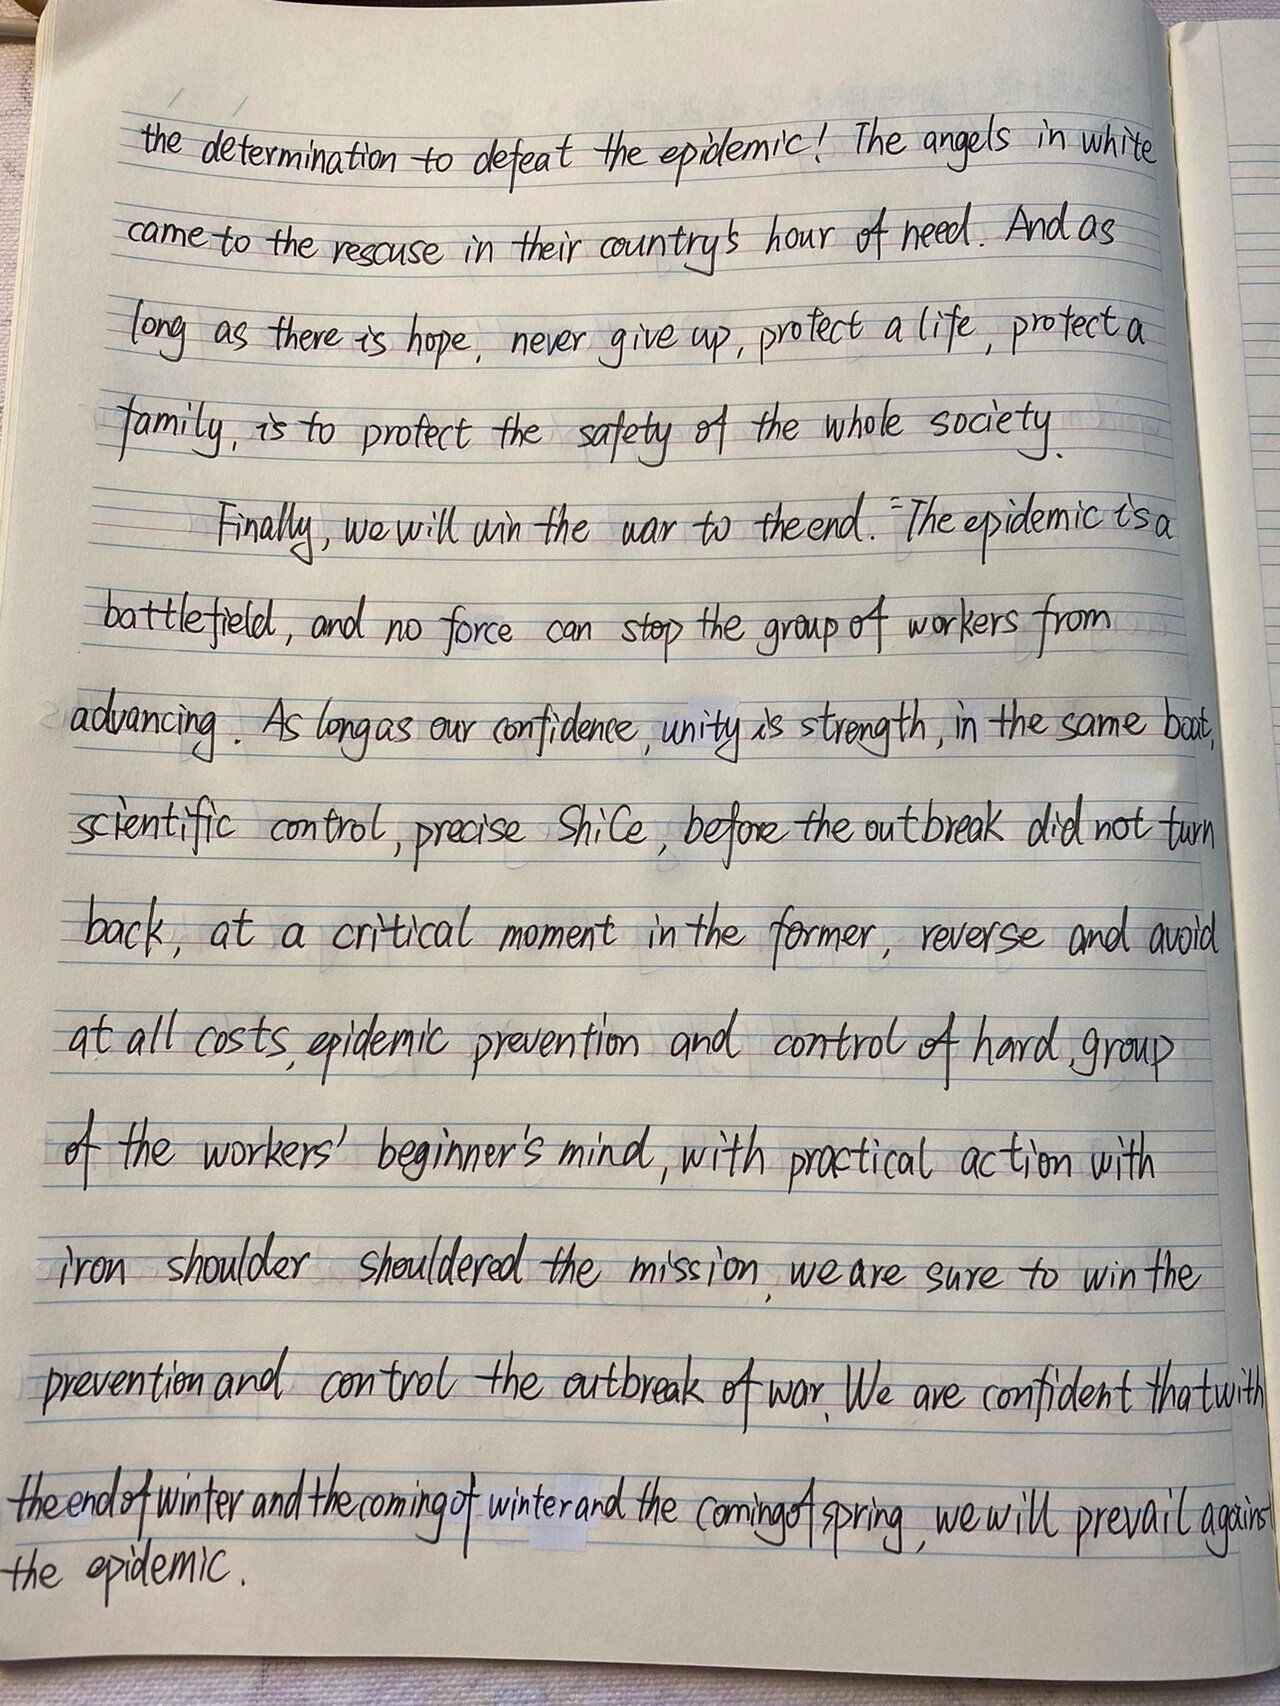 the determination to defeat the epidemic! The angels in white
came to the rescuse in their country's hour of need. And as
long as there is hope, never give up, protect a life, protect a
family, is to protect the safety of the whole society.
Finally, we will win the war to the end. The epidemic is a
battlefield, and no force can stop the group of workers from
advancing. As long as our confidence, unity is strength, in the same boat,
scientific control, precise ShiCe, before the outbreak did not turn
back, at a critical moment in the former, reverse and avoid
at all costs, epidemic prevention and control of hard, group
of the workers' beginner's mind, with practical action with
iron shoulder shouldered the mission, we are sure to win the
prevention and control the outbreak of war. We are confident that with
the end of winter and the coming of winter and the coming of spring, we will prevail against
the epidemic.